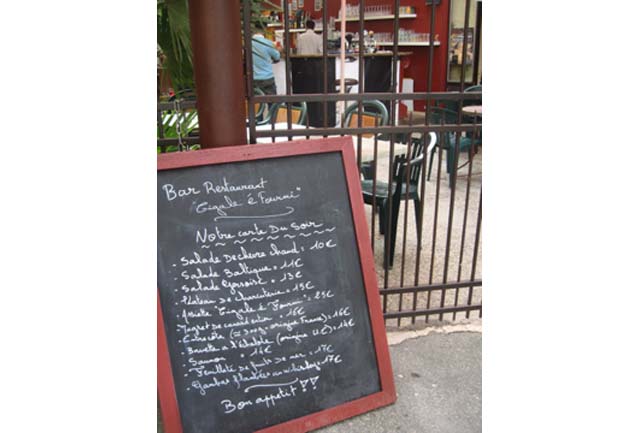 Bar Restaurant
"Cigale é Fourmi"
Notre carte Du Soir
- Salade De chevre chaud = 10€
- Salade Baltique = 11€
- Salade = 13€
- Plateau De charcuterie = 15€
- Assiette "Cigale é Fourmi" = 25€
- Magret de canard entier = 16€
- Entrecôte (≈ 300g origine France) = 16€
- Bavette a l'échalote (origine U.E) = 14€
- Saumon = 14€
- Feuilleté de fruits de mer = 17€
- Gambas flambées au whisky = 17€
Bon appetit !!